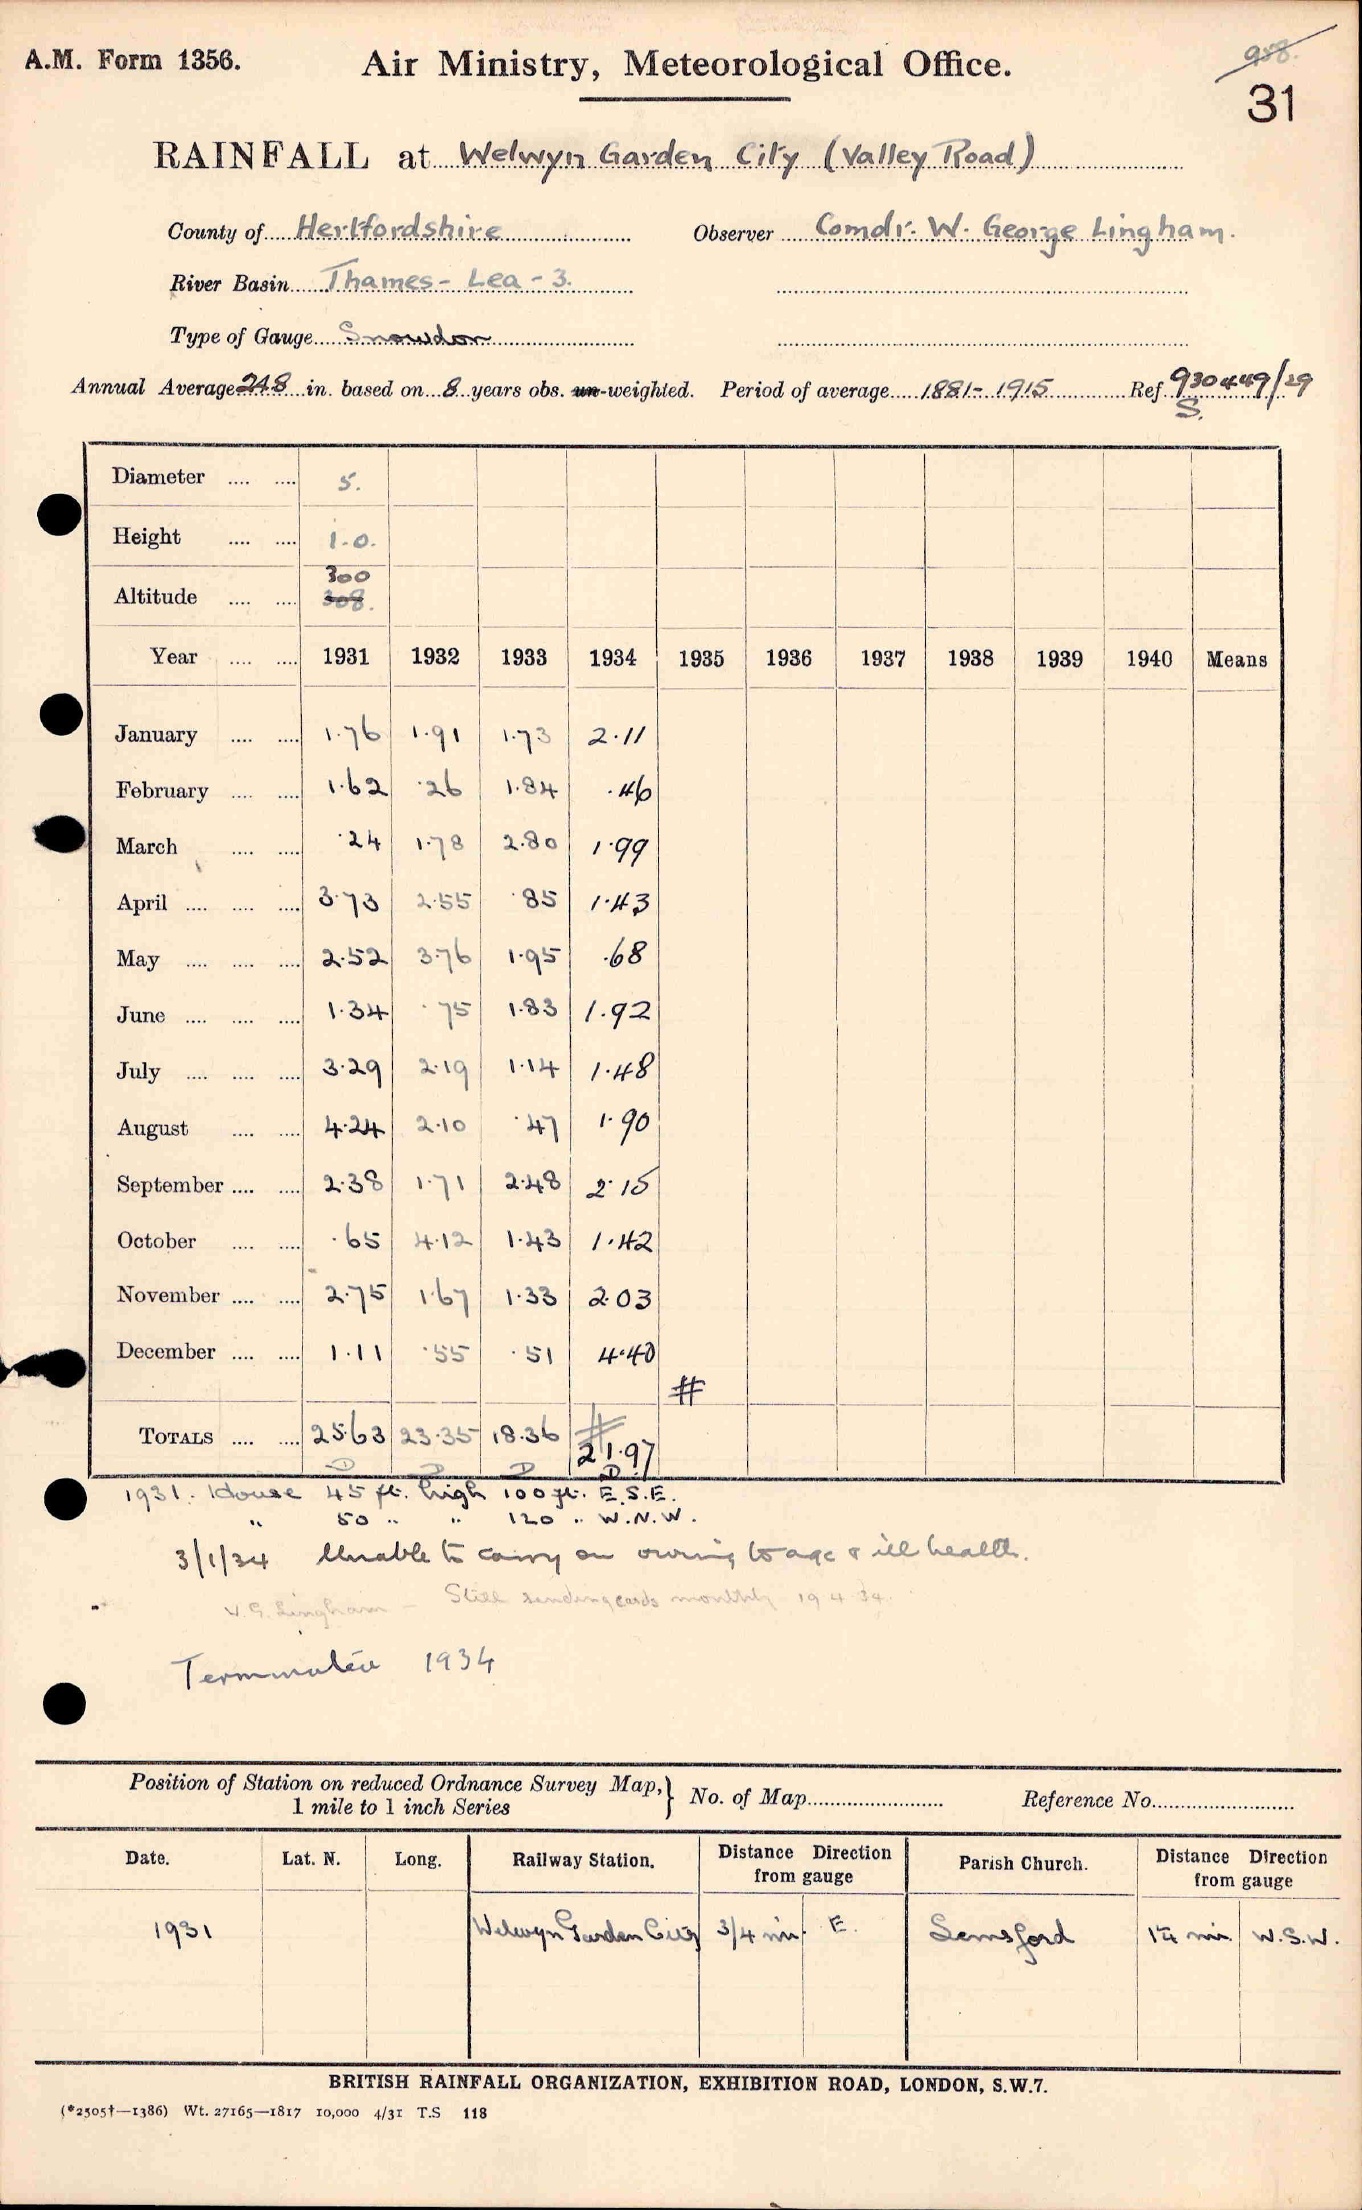 A.M. Form 1356.
Air Ministry, Meteorological Office.
958.
31
RAINFALL at Welwyn Garden City (Valley Road)
County of Hertfordshire Observer Comdr. W. George Lingham.
River Basin Thames - Lea - 3.
Type of Gauge Snowdon
Annual Average 24.8 in. based on 8 years obs. un-weighted. Period of average 1881-1915 Ref. 930449/29
S.
Diameter .... .... 5.
Height .... .... 1.0.
300
Altitude .... .... 308.
Year .... .... 1931 1932 1933 1934 1935 1936 1937 1938 1939 1940 Means
January .... .... 1.76 1.91 1.73 2.11
February .... .... 1.62 .26 1.84 .46
March .... .... .24 1.78 2.80 1.99
April .... .... .... 3.73 2.55 .85 1.43
May .... .... .... 2.52 3.76 1.95 .68
June .... .... .... 1.34 .75 1.83 1.92
July .... .... .... 3.29 2.19 1.14 1.48
August .... .... 4.24 2.10 .47 1.90
September .... .... 2.38 1.71 2.48 2.15
October .... .... .65 4.12 1.43 1.42
November .... .... 2.75 1.67 1.33 2.03
December .... .... 1.11 .55 .51 4.40
#
TOTALS .... .... 25.63 23.35 18.36 # 21.97
D D D D
1931. House 45 ft. high 100 ft. E.S.E.
" 50 " " 120 " W.N.W.
3/1/34 Unable to carry on owing to age & ill health.
W.G. Lingham - Still sending cards monthly 19 4 34.
Terminated 1934
Position of Station on reduced Ordnance Survey Map, } No. of Map Reference No.
1 mile to 1 inch Series
Date. Lat. N. Long. Railway Station. Distance Direction from gauge Parish Church. Distance Direction from gauge
1931 Welwyn Garden City 3/4 mi. E. Lemsford 1¼ mi. W.S.W.
BRITISH RAINFALL ORGANIZATION, EXHIBITION ROAD, LONDON, S.W.7.
(*2505†—1386) Wt. 27165—1817 10,000 4/31 T.S 118